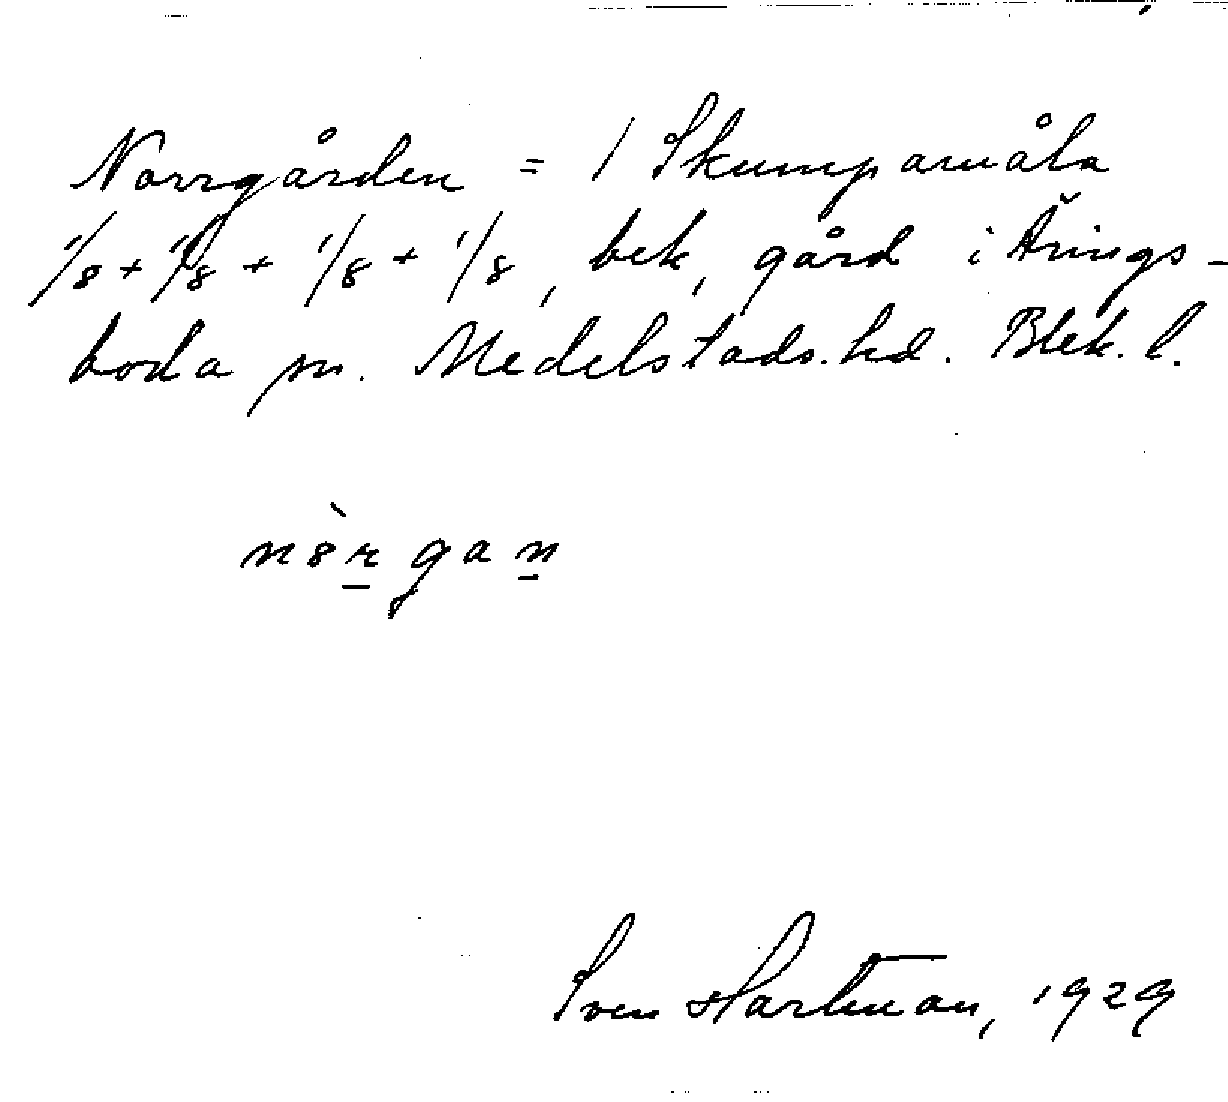 Norrgården = 1 Skumpamåla
1/8 + 1/8 + 1/8 + 1/8, bek, gård i Årings-
boda sn. Medelstads. hd. Blek. l.
nörgan
Sven Hartman, 1929